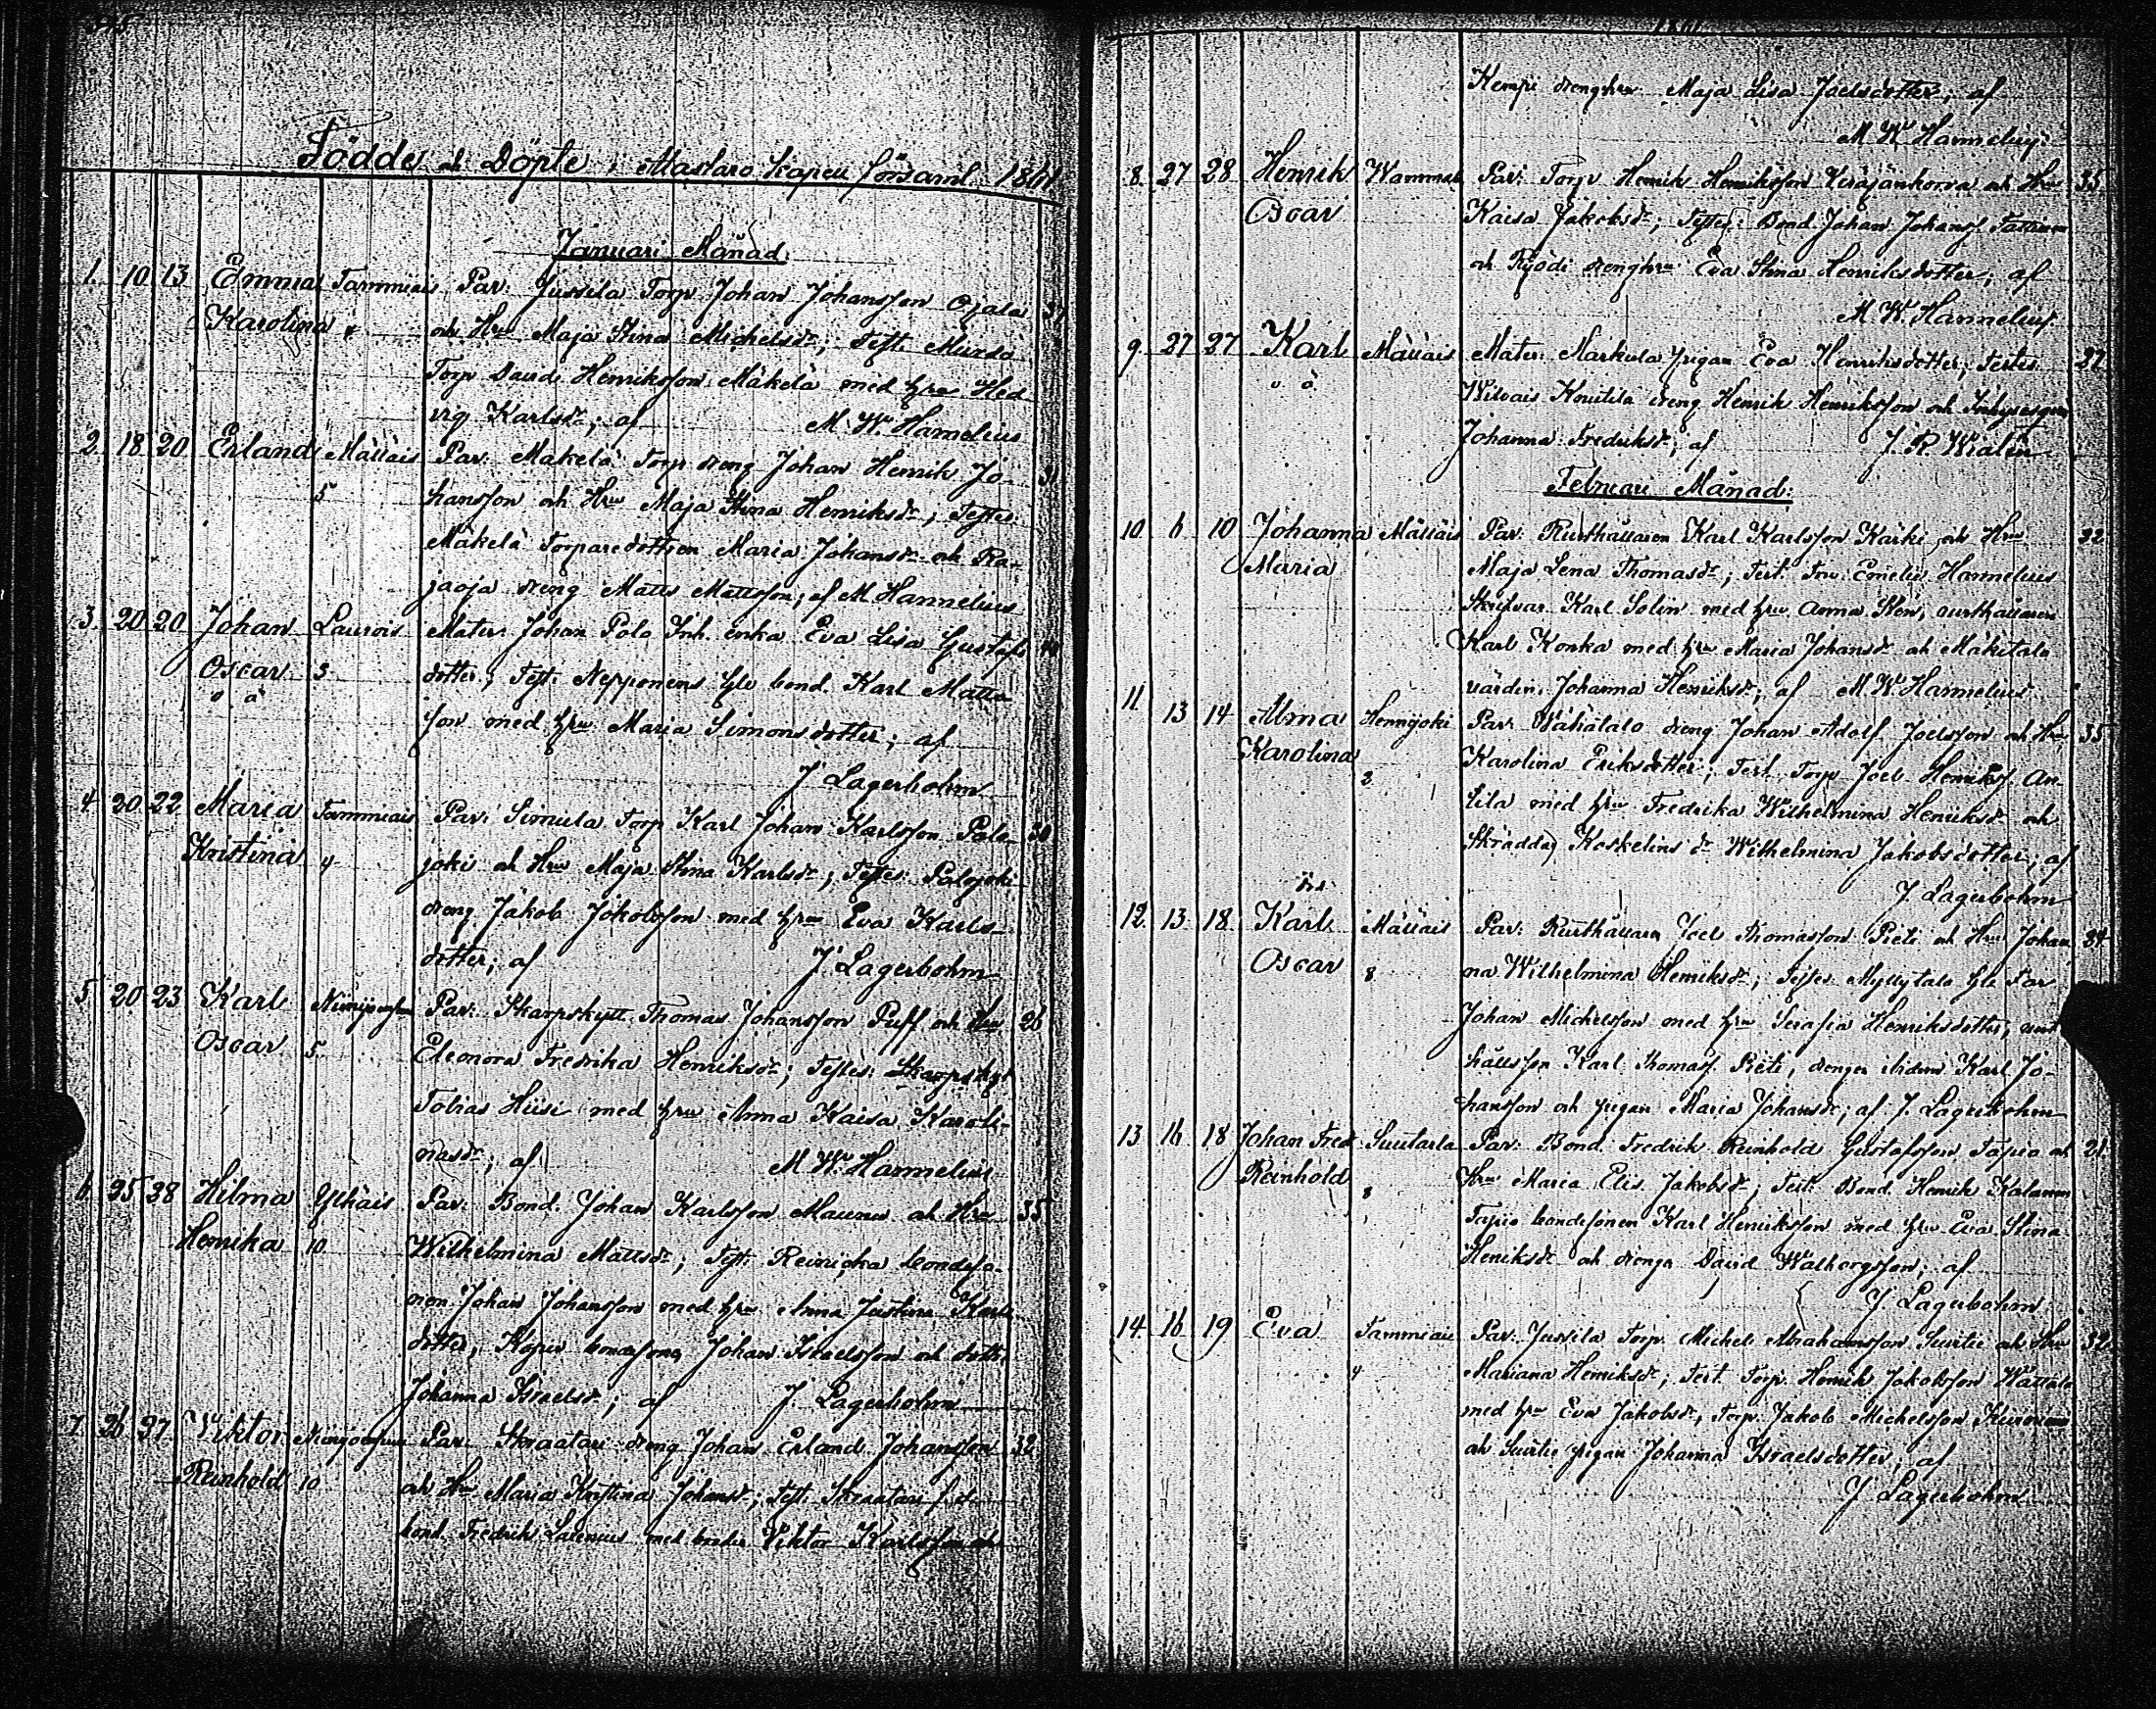 Födde och Döpte i Mastaro Kapell församl. 1861
Januari Månad:
1. 10 13 Emma Tammiais Par: Jussila Torp Johan Johansson Ojala 37
Karolina 4 och Hru Maja Stina Michelsdr; Test.
Torp David Henriksson Mäkelä med hru Hed
vig Karlsdr; af M. W. Hannelius
2. 18 20 Erland Mälläis Par: Mäkelä Torp dreng Johan Henrik Jo- 31
5 hansson och Hru Maja Stina Henriksdr; Testes:
Mäkelä Torparedottren Maria Johansdr och Ra-
jaoja dreng Matts Mattsson; af M Hannelius
3. 20 20 Johan Laurois Mater: Johan Polo Inh. enka Eva Lisa Gustafs
Oscar 3 dotter; Test: Nepponens Gle bond. Karl Matts
o ä son med hru Maria Simonsdotter; af
J Lagerbohm
4 20 22 Maria Tammiais Par: Simula Torp Karl Johan Karlsson Palo- 30
Kristina 4 joki och Hru Maja Stina Karlsdr; Testes: Palojoki
dreng Jakob Jakobsson med hru Eva Karls-
dotter; af J Lagerbohm
5 20 23 Karl Par: Skarpskytt Thomas Johansson Puff och Hru 26
Oscar 5 Eleonora Fredrika Henriksdr; Testes: Skarpskyt
Tobias Hiisi med hru Anna Kaisa Karoli-
nasdr; af M W. Hannelius
6. 25 28 Hilma Ylihäis Par: Bond. Johan Karlsson Maunu och Hru 35
Henrika 10 Wilhelmina Mattsdr; Test: Reinicka bondeso-
nen Johan Johansson med hru Anna Justina Karls
dotter, bondesonen Johan Israelsson och dottr
Johanna Israelsdr; af J. Lagerbohm
7 26 27 Viktor Par: Skraatari dreng Johan Erland Johansson 32
Reinhold 10 och Hru Maria Kristina Johansdr; Test: Skraatari f. d.
bond. Fredrik Laurenius med broder Viktor Karlsson och
1861
Kempi drenghru Maja Lisa Joelsdotter; af
M W Hannelius
8. 27 28 Henrik Wammala Par: Torp Henrik Henriksson Keräjänkorva och Hru 35
Oscar Kaisa Jakobsdr; Testes: Bond. Johan Johanss. Tattinen
och Ryödi drenghru Eva Stina Henriksdotter; af
M. W. Hannelius
9. 27 27 Karl Mälläis Mater: Markula pigan Eva Henriksdotter; Testes 27
o ä Wilvais Knuttila dreng Henrik Henriksson och Inhysesqvin
Johanna Fredriksdr; af J. R. Wialén
Februari Månad:
10. 6 10 Johanna Mälläis Par: Rusthållaren Karl Karlsson Kärki och Hru 32
Maria Maja Lena Thomasdr; Test. Fru Emelie Hannelius
Skrifvar Karl Solin med hru Anna Kén, rusthållaren
Karl Konka med hru Maria Johansdr och Mäkitalo
värdin. Johanna Henriksdr; af M W. Hannelius
11 13 14 Alma Hennijoki Par: Wähätalo dreng Johan Adolf Joelsson och Hru 35
Karolina 2 Karolina Eriksdotter; Test. Torp Joel Henrikss. An-
tila med hru Fredrika Wilhelmina Henriksdr och
Skräddar Koskelins dr Wilhelmina Jakobsdotter; af
J. Lagerbohm
12. 13 18 Karl Mälläis Par: Rusthållaren Joel Thomasson Pieti och Hru Johan 34
Oscar 8 na Wilhelmina Henriksdr; Testes Myllytalo Gle Par
Johan Michelsson med hru Serafia Henriksdotter, rust
hållsson Karl Thomass. Pieti, drengen ibidem Karl Jo-
hansson och pigan Maria Johansdr; af J. Lagerbohm
13 16 18 Johan Fred. Suutarla Par: Bond Fredrik Reinhold Gustafsson Tapio och 21
Reinhold 8 Hru Maria Elis. Jakobsdr; Test: Bond. Henrik Kalanen
Tapio bondesonen Karl Henriksson med hru Eva Stina
Henriksdr och drengen David Walborgsson; af
J. Lagerbohm
14. 16 19 Eva Tammiais Par: Jussila Torp. Michels Abrahamsson Suutii och Hru 32
4 Mariana Henriksdr; Test. Torp. Henrik Jakobsson Wättälo
med hru Eva Jakobsdr, Torp. Jakob Michelsson
och Suutii pigan Johanna Israelsdotter; af
J Lagerbohm